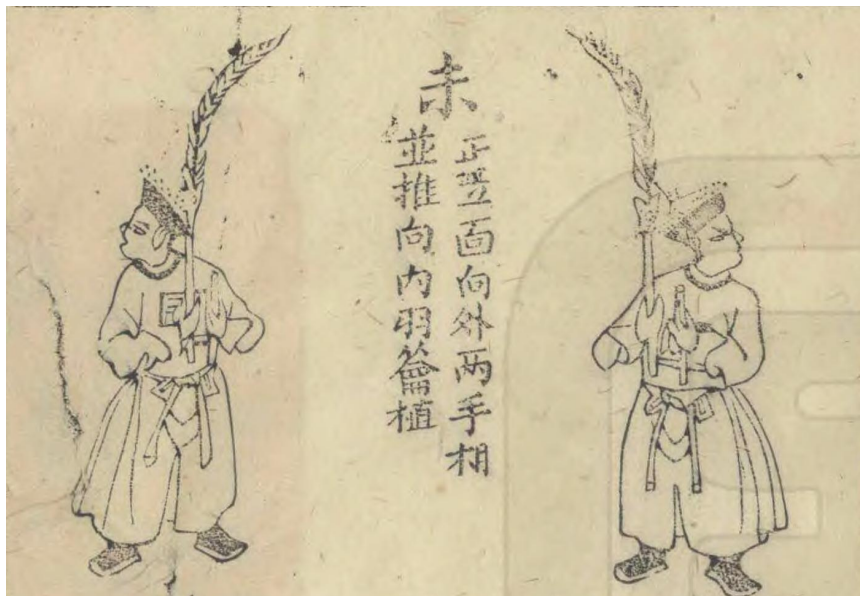 未
正立面向外两手相
並推向内羽籥植